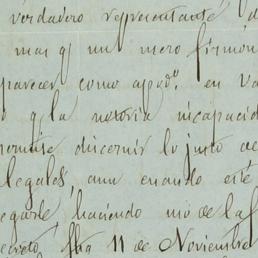 verdadero representante d
mas q.e un mero firmón
parecer como apod.o en va
o q.e la notoria incapacid
ermite discernir lo justo de
legales, aun cuando esté
egarle, haciendo uso de la f
ecreto, fha 11 de Noviembre